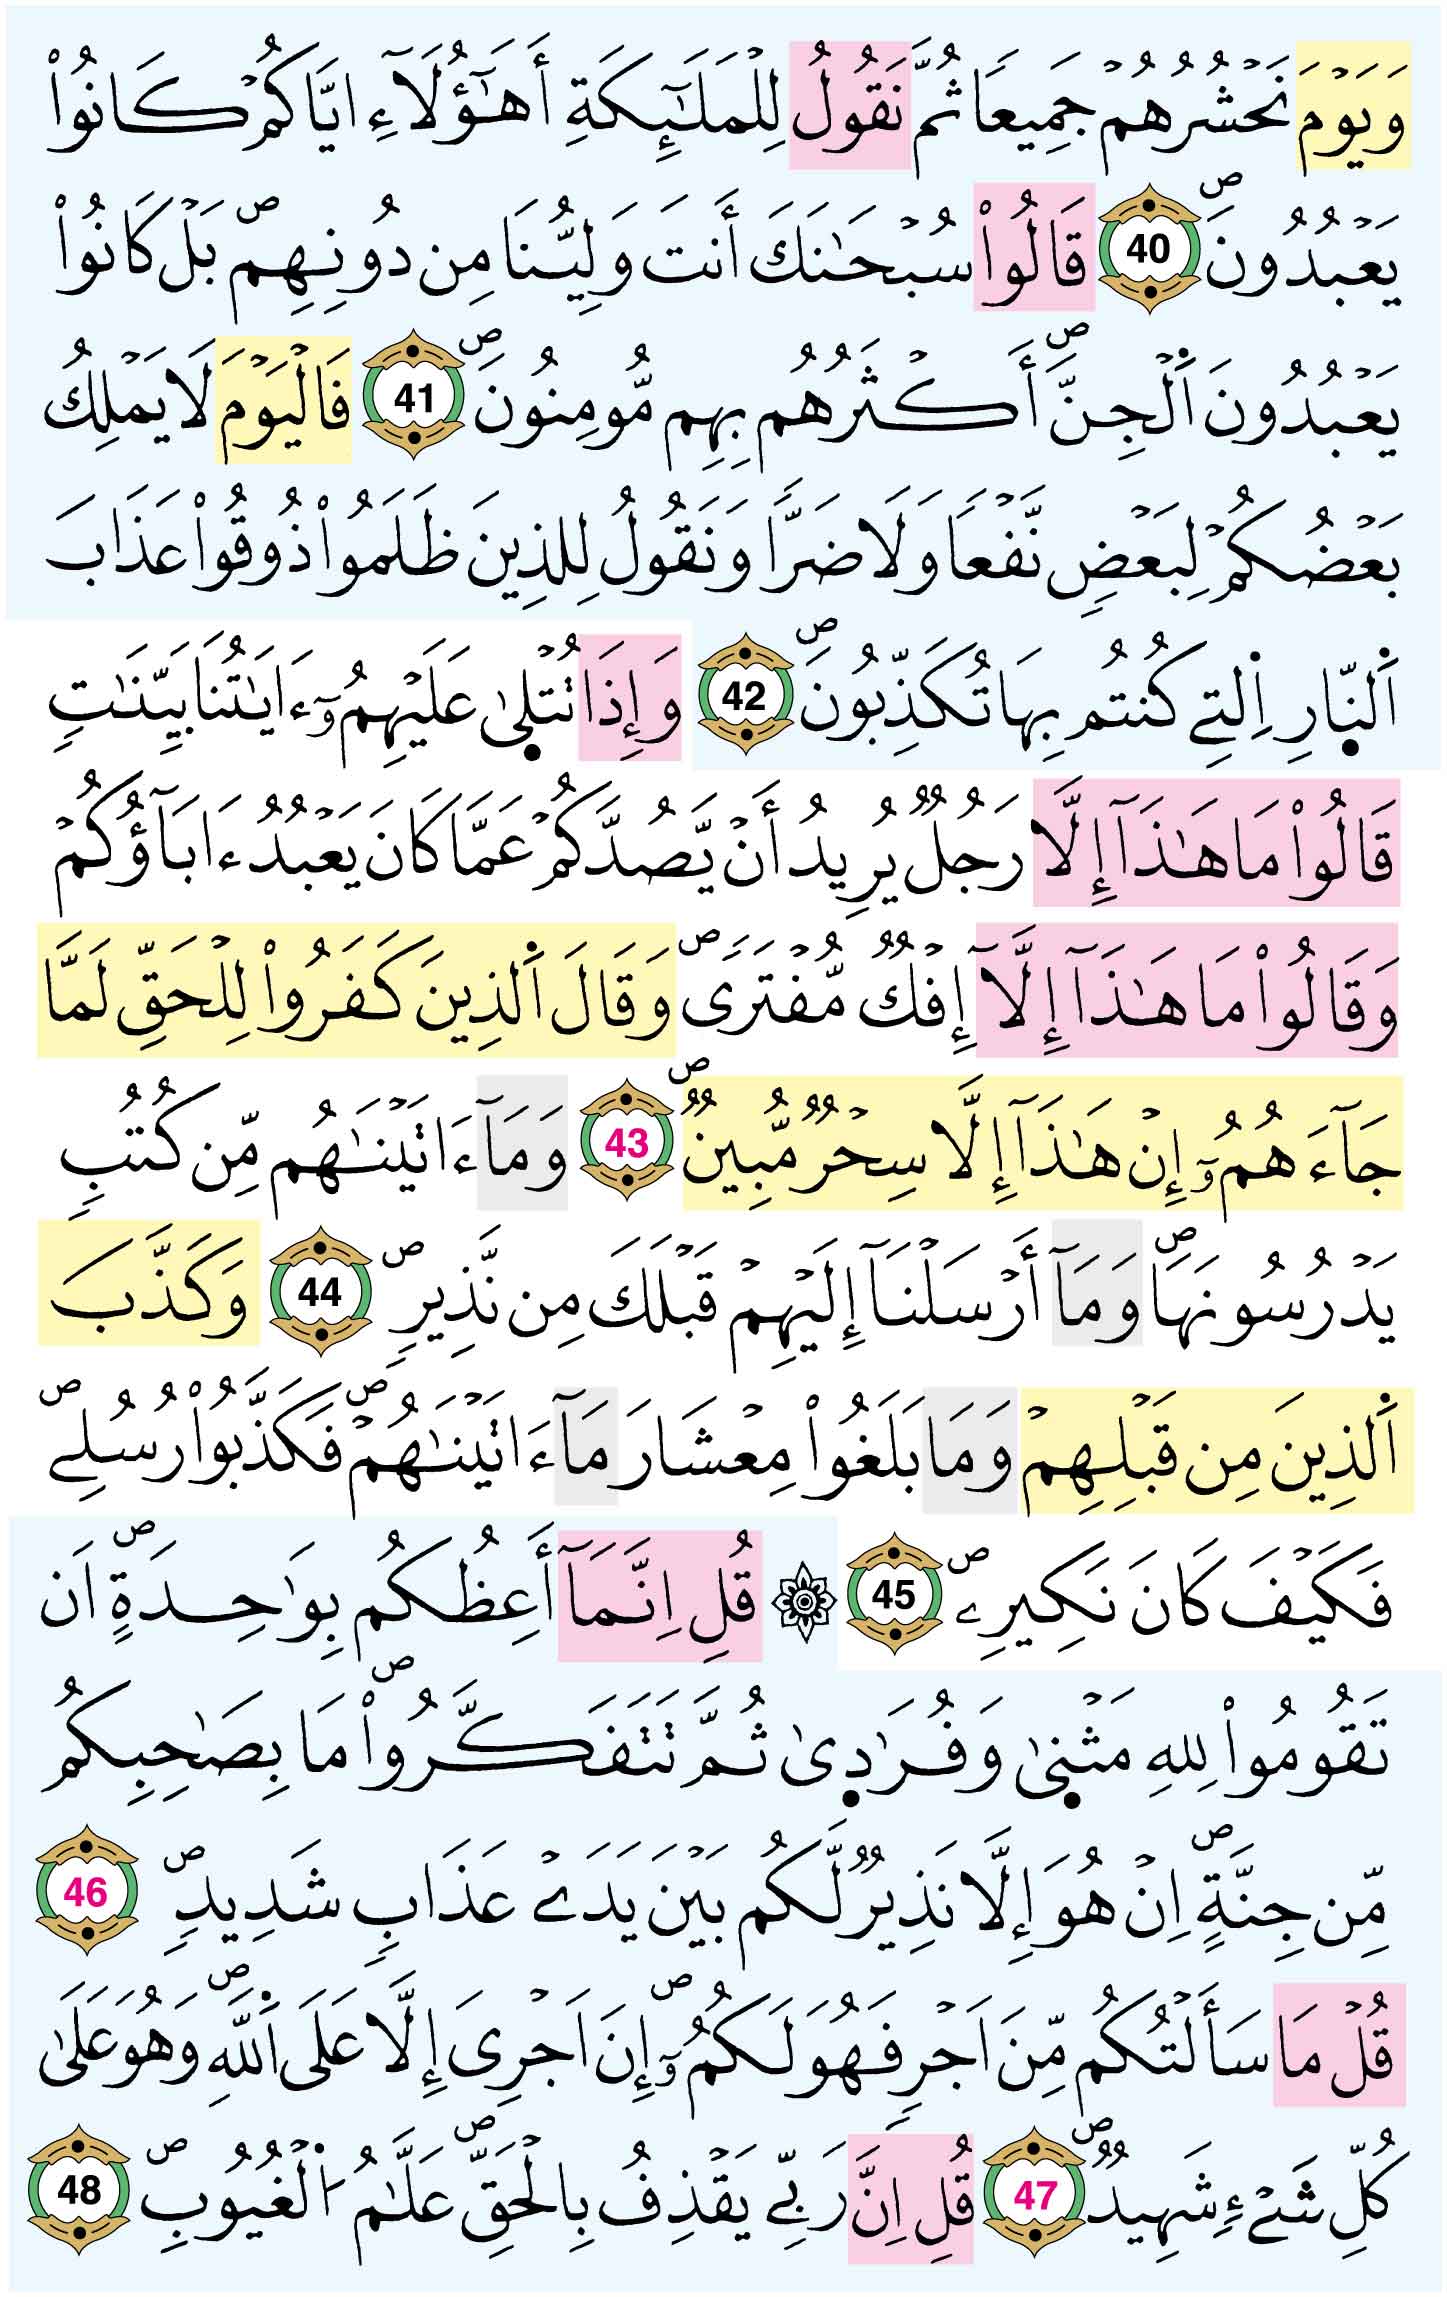 وَيَوْمَ نَحْشُرُهُمْ جَمِيعًا ثُمَّ نَقُولُ لِلْمَلَٰٓئِكَةِ أَهَٰٓؤُلَآءِ اِيَّاكُمْ كَانُواْ
يَعْبُدُونَۖ 40 قَالُواْ سُبْحَٰنَكَ أَنتَ وَلِيُّنَا مِن دُونِهِمۖ بَلْ كَانُواْ
يَعْبُدُونَ اَ۬لْجِنَّۖ أَكْثَرُهُم بِهِم مُّومِنُونَۖ 41 فَالْيَوْمَ لَا يَمْلِكُ
بَعْضُكُمْ لِبَعْضٍ نَّفْعًا وَلَا ضَرًّا وَنَقُولُ لِلذِينَ ظَلَمُواْ ذُوقُواْ عَذَابَ
اَ۬لنّ۪ارِ اِ۬لتِے كُنتُم بِهَا تُكَذِّبُونَۖ 42 وَإِذَا تُتْل۪ىٰ عَلَيْهِمُۥٓ ءَايَٰتُنَا بَيِّنَٰتٍ
قَالُواْ مَا هَٰذَآ إِلَّا رَجُلٌ يُرِيدُ أَنْ يَّصُدَّكُمْ عَمَّا كَانَ يَعْبُدُ ءَابَآؤُكُمْ
وَقَالُواْ مَا هَٰذَآ إِلَّآ إِفْكٌ مُّفْتَرىًۖ وَقَالَ اَ۬لذِينَ كَفَرُواْ لِلْحَقِّ لَمَّا
جَآءَهُمُۥٓ إِنْ هَٰذَآ إِلَّا سِحْرٌ مُّبِينٌۖ 43 وَمَآ ءَاتَيْنَٰهُم مِّن كُتُبٍ
يَدْرُسُونَهَاۖ وَمَآ أَرْسَلْنَآ إِلَيْهِمْ قَبْلَكَ مِن نَّذِيرٍۖ 44 وَكَذَّبَ
اَ۬لذِينَ مِن قَبْلِهِمْ وَمَا بَلَغُواْ مِعْشَارَ مَآ ءَاتَيْنَٰهُمْۖ فَكَذَّبُواْ رُسُلِےۖ
فَكَيْفَ كَانَ نَكِيرِۦۖ 45 ۞ قُلِ اِنَّمَآ أَعِظُكُم بِوَٰحِدَةٍۖ اَن
تَقُومُواْ لِلهِ مَثْن۪ىٰ وَفُرَٰد۪ىٰ ثُمَّ تَتَفَكَّرُواْۖ مَا بِصَٰحِبِكُم
مِّن جِنَّةٍۖ اِنْ هُوَ إِلَّا نَذِيرٌ لَّكُم بَيْنَ يَدَےْ عَذَابٍ شَدِيدٍۖ 46
قُلْ مَا سَأَلْتُكُم مِّنَ اَجْرٍ فَهُوَ لَكُمُۥٓۖ إِنَ اَجْرِيَ إِلَّا عَلَى اَ۬للَّهِۖ وَهُوَ عَلَىٰ
كُلِّ شَےْءٍ شَهِيدٌۖ 47 قُلِ اِنَّ رَبِّے يَقْذِفُ بِالْحَقِّۖ عَلَّٰمُ اُ۬لْغُيُوبِۖ 48